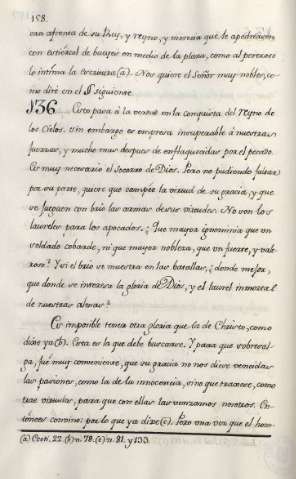 158.
van afrenta de su Rey, y reyno, y merecia que le apedreasen
con estiercol de bueyes en medio de la plaza, como al perezoso
lo intima la escritura (a). Nos quiere el Señor muy nobles, co-
mo diré en el § siguiente.
§36. Esto para á la verdad en la conquista del Reyno de
los Cielos. Sin embargo es empresa insuperable á nuestras
fuerzas, y mucho mas despues de enflaquecidas por el pecado.
Es muy necesario el socorro de Dios. Pero no pudiendo faltar
por su parte, quiere que campée la virtud de su gracia, y que
se jueguen con brio las armas de sus virtudes. No son los
laureles para los apocados. ¿Que mayor ignominia que un
soldado cobarde, ni que mayor nobleza, que un fuerte, y vale-
roso? Y si el brio se muestra en las batallas, ¿donde mejor,
que donde se interesa la gloria de Dios, y el laurel inmortal
de nuestras almas?
Es imposible tenga otra gloria que la de Christo, como
dixe ya (b). Esta es la que debe buscarse. Y para que sobresal-
ga, fué muy conveniente, que su gracia no nos diese vencidas
las pasiones, como la de la innocencia, sino que traxese, como
trae virtudes, para que con ellas las venzamos nosotros. En-
tónces convino por lo que ya dixe (c). Pero una vez que el hom-
(a) Eccli. 22. (b) n. 78. (c) n. 81. y 133.